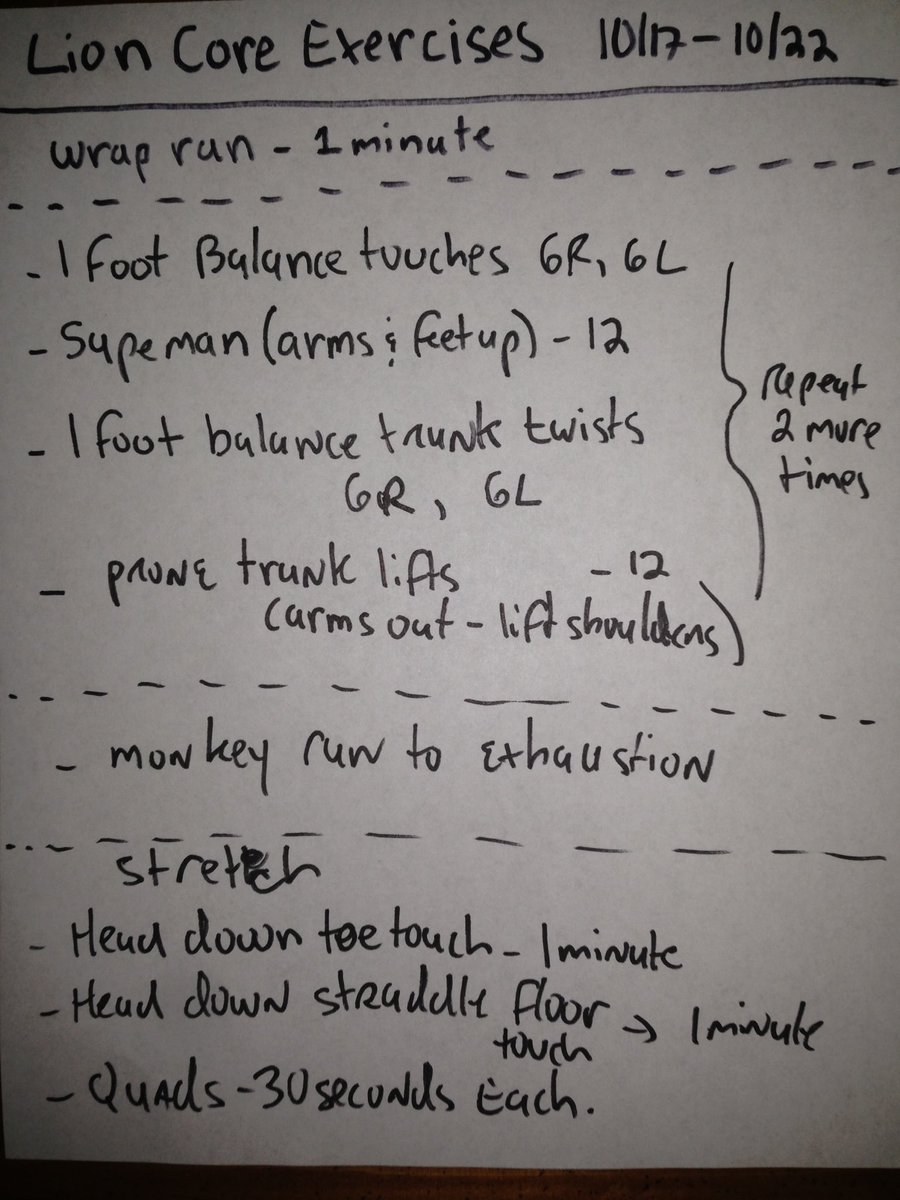 Lion Core Exercises 10/17-10/22
wrap run - 1 minute
- 1 foot Balance touches 6R, 6L
- Supeman (arms & feet up) - 12
- 1 foot balance trunk twists
6R, 6L
- prone trunk lifts - 12
(arms out - lift shoulders)
repeat
2 more
times
- monkey run to Exhaustion
stretch
- Head down toe touch - 1 minute
- Head down straddle floor → 1 minute
touch
- Quads - 30 seconds Each.